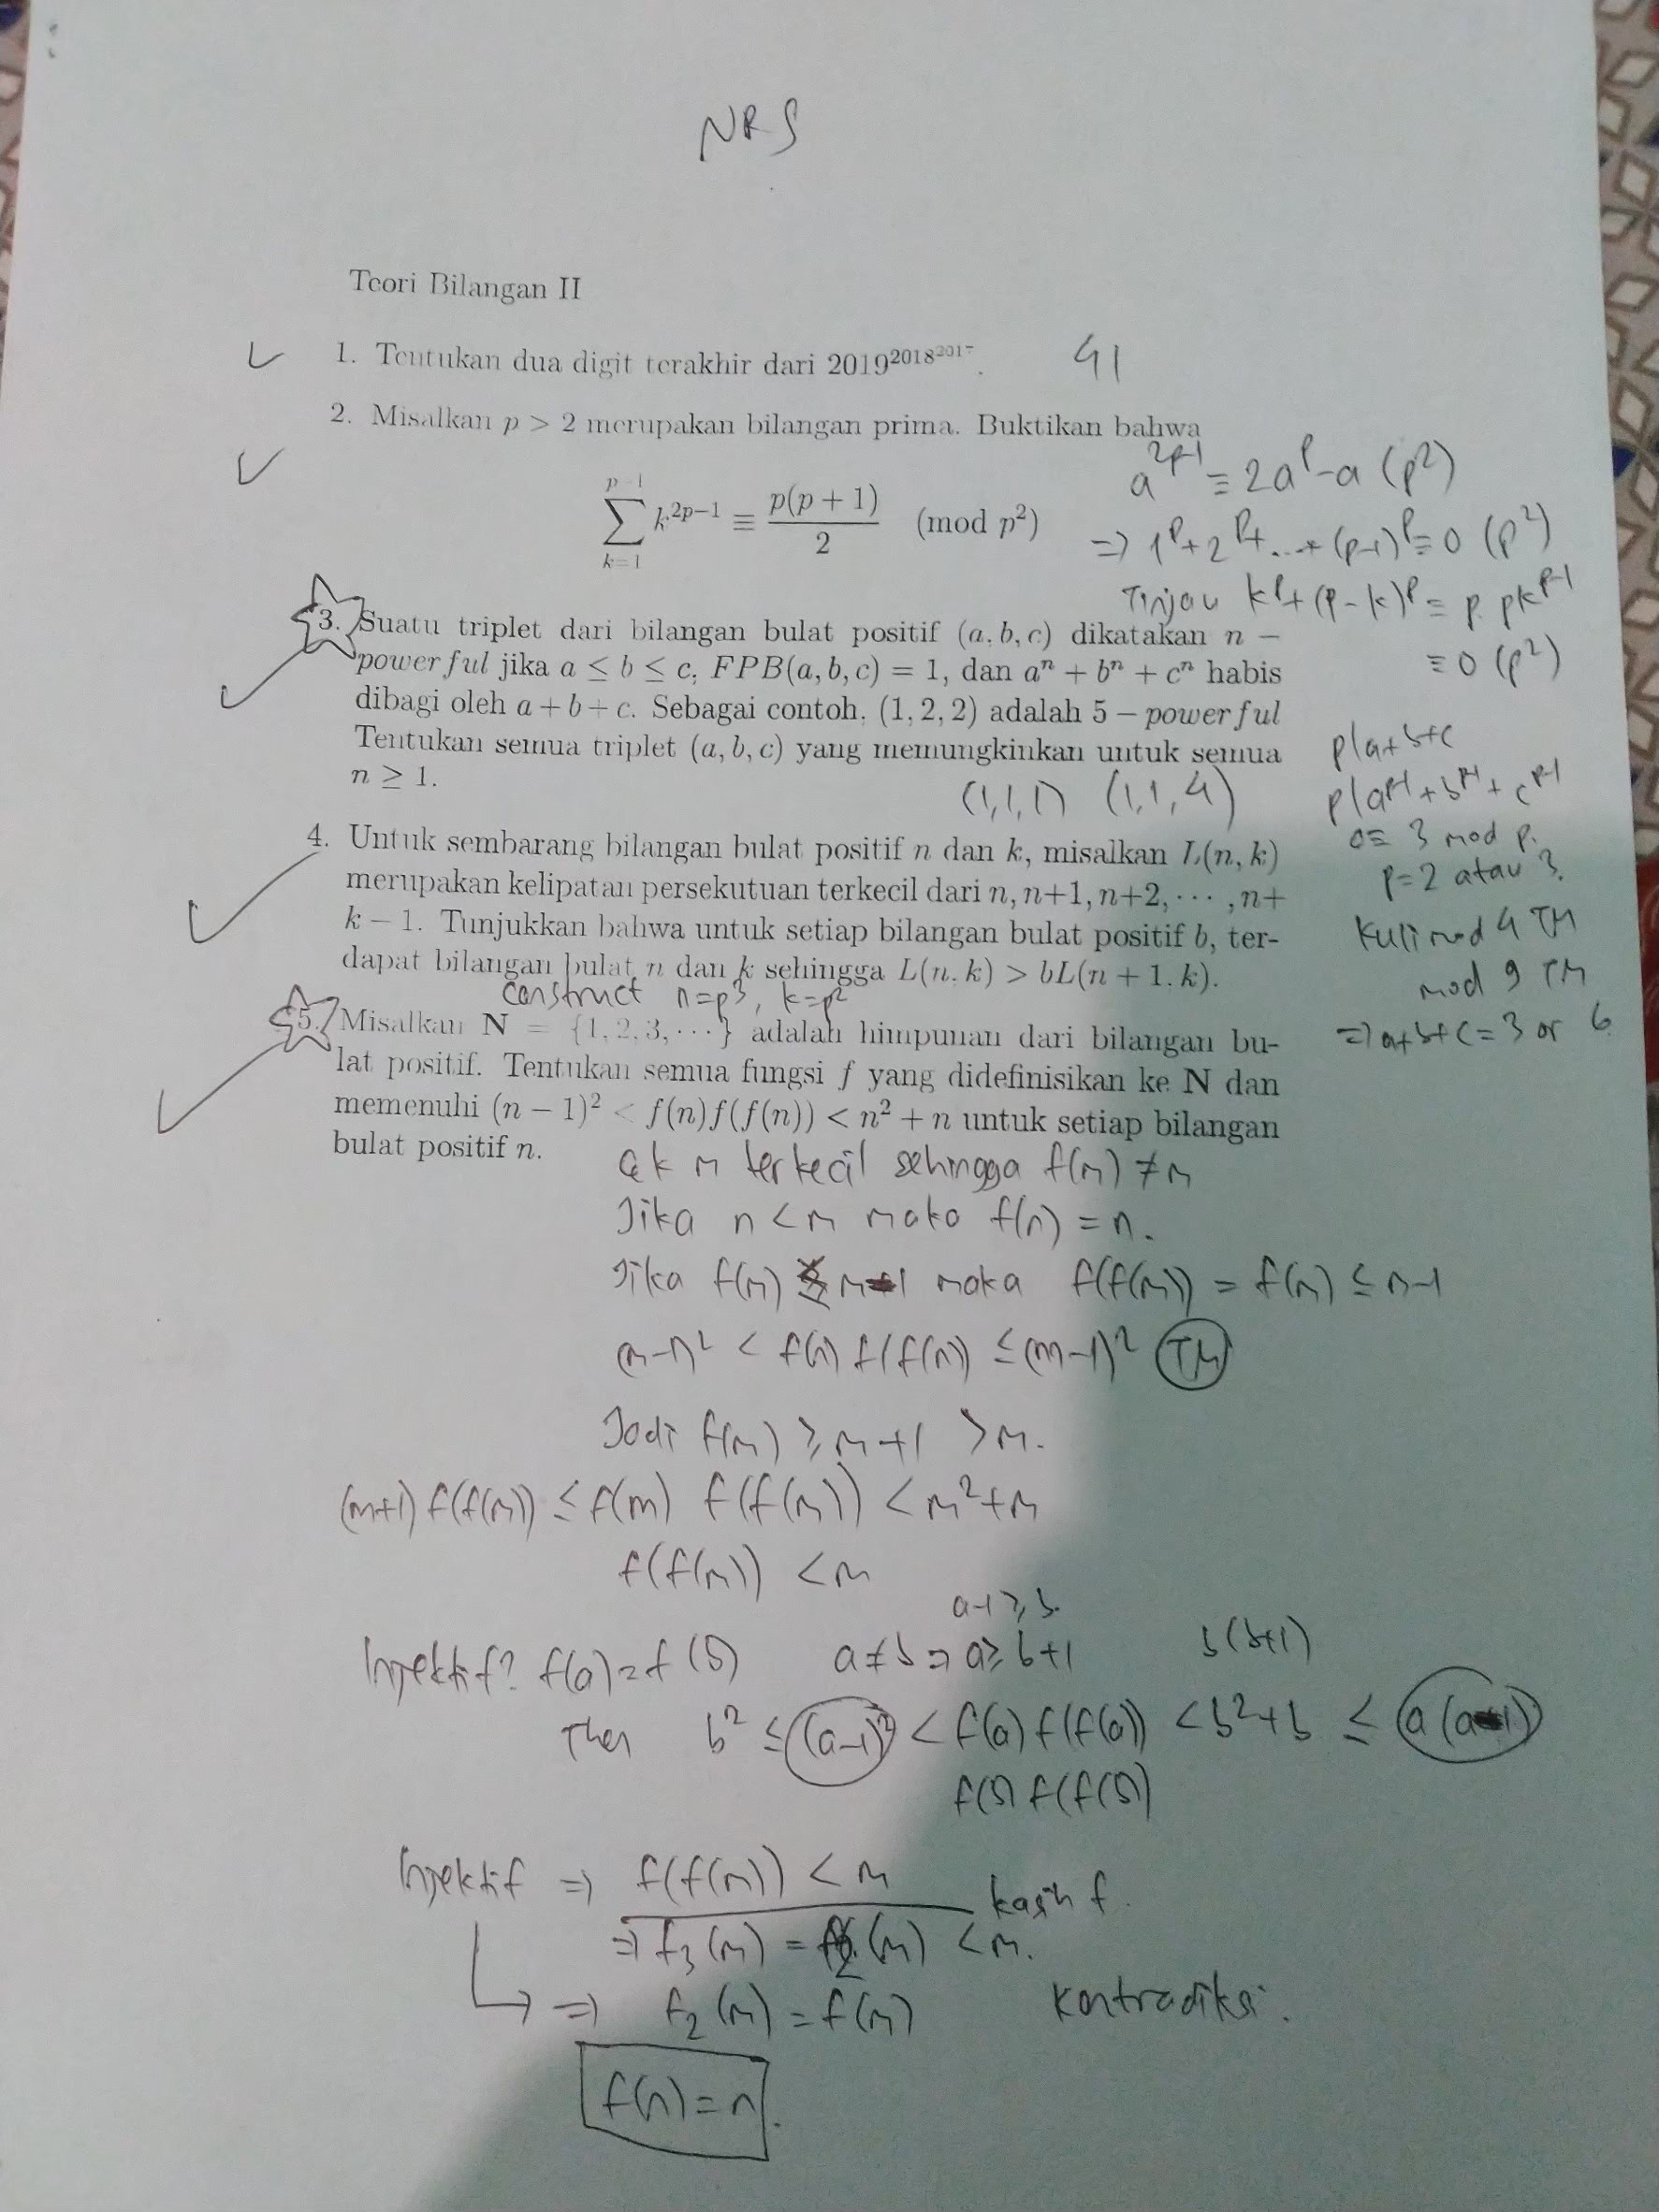 NRS
Teori Bilangan II
1. Tentukan dua digit terakhir dari 2019^2018^2017. 41
2. Misalkan p > 2 merupakan bilangan prima. Buktikan bahwa
a^2p-1 ≡ 2a^p - a (p^2)
∑_{k=1}^{p-1} k^{2p-1} ≡ p(p + 1)/2 (mod p^2)
=> 1^p + 2^p + ... + (p-1)^p ≡ 0 (p^2)
Tinjau k^p + (p-k)^p ≡ p. pk^p-1
≡ 0 (p^2)
3. Suatu triplet dari bilangan bulat positif (a, b, c) dikatakan n −
powerful jika a ≤ b ≤ c, FPB(a, b, c) = 1, dan a^n + b^n + c^n habis
dibagi oleh a + b + c. Sebagai contoh, (1, 2, 2) adalah 5 − powerful
Tentukan semua triplet (a, b, c) yang memungkinkan untuk semua
n ≥ 1.
(1,1,1) (1,1,4)
p|a+b+c
p|a^p-1 + b^p-1 + c^p-1
0 ≡ 3 mod p.
p=2 atau 3.
mod 4 TM
mod 9 TM
=> a+b+c = 3 or 6
4. Untuk sembarang bilangan bulat positif n dan k, misalkan L(n, k)
merupakan kelipatan persekutuan terkecil dari n, n+1, n+2, ··· , n+
k − 1. Tunjukkan bahwa untuk setiap bilangan bulat positif b, ter-
dapat bilangan bulat n dan k sehingga L(n, k) > bL(n + 1, k).
construct n=p^3, k=p^2
5. Misalkan N = {1, 2, 3, ···} adalah himpunan dari bilangan bu-
lat positif. Tentukan semua fungsi f yang didefinisikan ke N dan
memenuhi (n − 1)^2 < f(n)f(f(n)) < n^2 + n untuk setiap bilangan
bulat positif n.
m terkecil sehingga f(m) ≠ m
Jika n < m maka f(n) = n.
Jika f(m) ≤ m-1 maka f(f(m)) = f(m) ≤ m-1
(m-1)^2 < f(m) f(f(m)) ≤ (m-1)^2 TM
Jadi f(m) ≥ m+1 > m.
(m+1) f(f(m)) ≤ f(m) f(f(m)) < m^2+m
f(f(m)) < m
a-1 ≥ b.
Injektif? f(a) = f(b) a ≠ b => a ≥ b+1 b(b+1)
Then b^2 ≤ (a-1)^2 < f(a) f(f(a)) < b^2+b ≤ a(a-1)
f(b) f(f(b))
Injektif => f(f(m)) < m
kasih f.
=> f_3(m) = f_2(m) < m.
=> f_2(m) = f(m) kontradiksi.
f(n) = n.